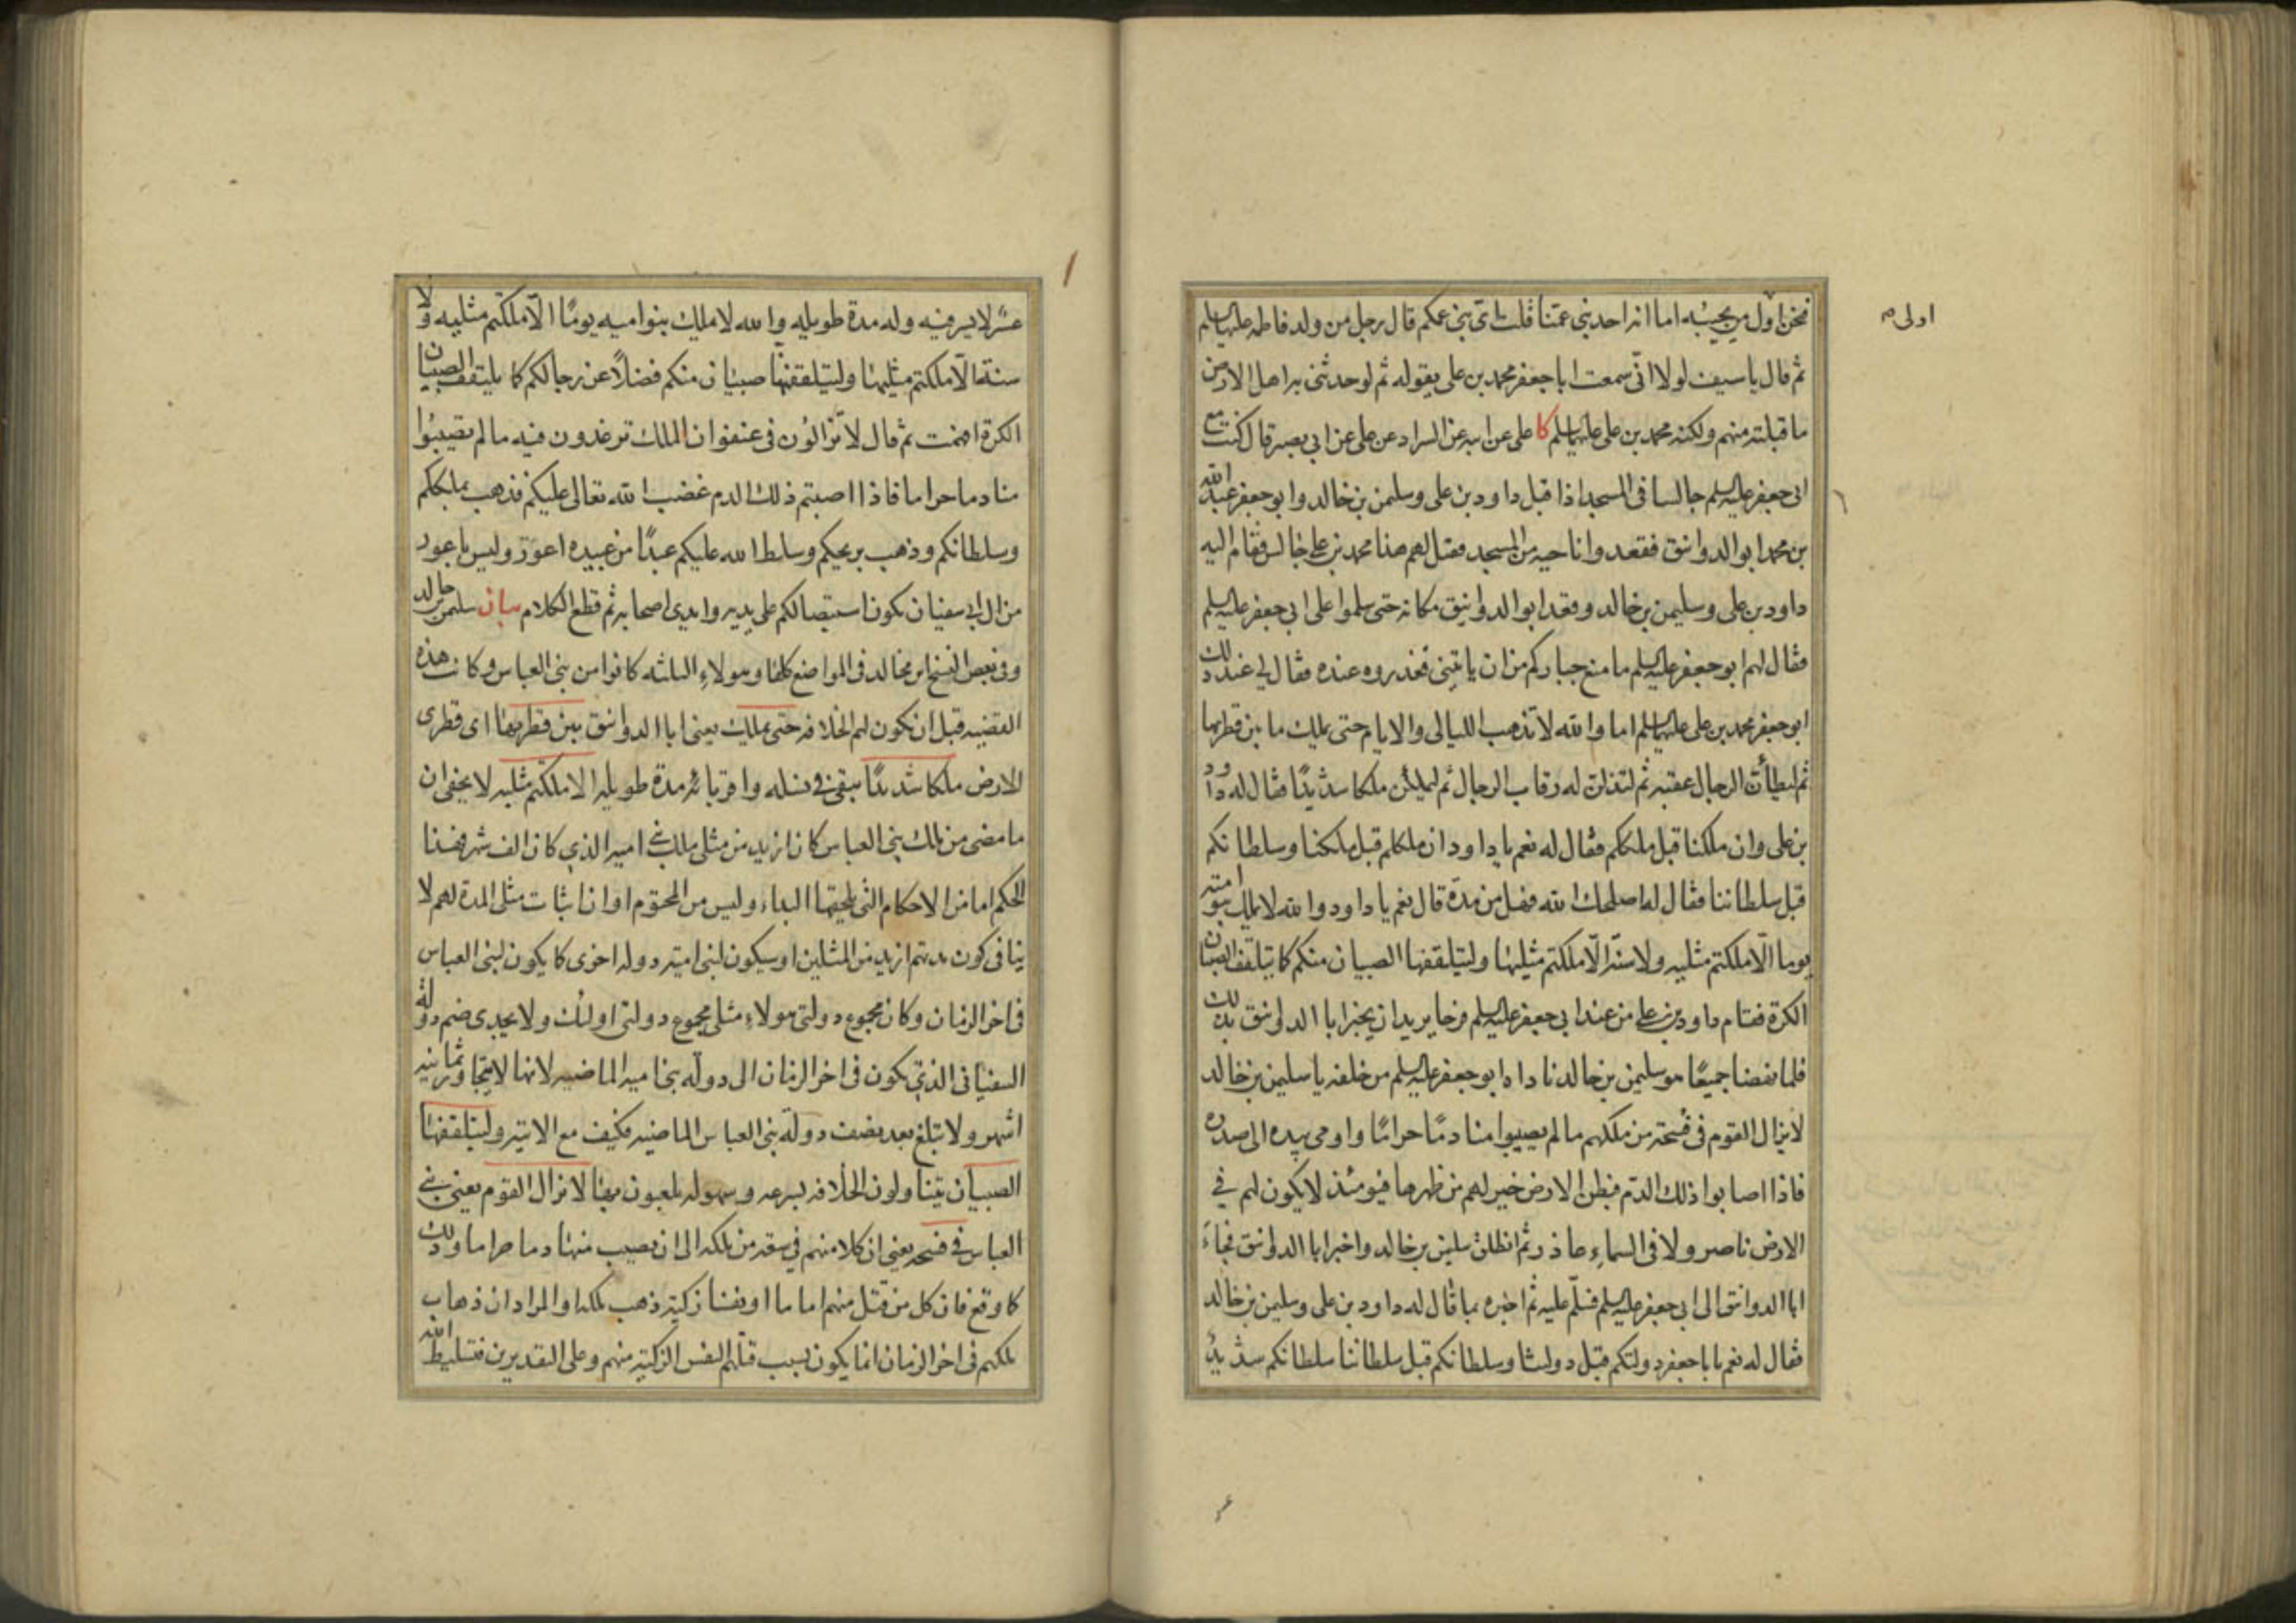 فنحن اول من يجيبه اما انه احد بنى عمنا قلت اى بنى عمكم قال رجل من ولد فاطمه عليها السلم
اولى م
ثم قال يا سيف لولا انى سمعت ابا جعفر محمد بن على يقوله ثم لو حدثنى به اهل الارض
ما قبلته منهم ولكنه محمد بن على عليهما السلم كا على عن ابيه عن السراد عن على عن ابى بصير قال كنت مع
ابى جعفر عليه السلم جالسا فى المسجد اذ اقبل داود بن على وسليمن بن خالد وابو جعفر عبد الله
بن محمد ابو الدوانيق فقعدوا ناحيه من المسجد فقيل لهم هذا محمد بن على جالس فقام اليه
داود بن على وسليمن بن خالد وقعد ابو الدوانيق مكانه حتى سلموا على ابى جعفر عليه السلم
فقال لهم ابو جعفر عليه السلم ما منع جباركم من ان ياتينى فعذروه عنده فقال لى عند ذلك
ابو جعفر محمد بن على عليهما السلم اما والله لا تذهب الليالى والايام حتى يملك ما بين قطريها
ثم ليطأن الرجال عقبه ثم لتذلن له رقاب الرجال ثم ليملكن ملكا شديدًا فقال له داود
بن على وان ملكنا قبل ملككم فقال له نعم يا داود ان ملككم قبل ملكنا وسلطانكم
قبل سلطاننا فقال له اصلحك الله فهل من مدة قال نعم يا داود والله لا يملك بنو اميه
يوما الا ملكتم مثليه ولا سنة الا ملكتم مثليها وليتلقفها الصبيان منكم كا يتلقف الصبيان
الكرة فقام داود بن على من عند ابى جعفر عليه السلم فرحا يريد ان يخبر ابا الدوانيق بذلك
فلما نهضا جميعًا هو وسليمن بن خالد ناداه ابو جعفر عليه السلم من خلفه يا سليمن بن خالد
لا يزال القوم فى فسحة من ملكهم ما لم يصيبوا منا دمًا حرامًا واومى بيده الى صدره
فاذا اصابوا ذلك الدم فبطن الارض خير لهم من ظهرها فيومئذ لا يكون لهم فى
الارض ناصر ولا فى السماء عاذر ثم انطلق سليمن بن خالد واخبر ابا الدوانيق فجاء
ابا الدوانيق الى ابى جعفر عليه السلم فسلم عليه ثم اخبره بما قال له داود بن على وسليمن بن خالد
فقال له نعم يا با جعفر دولتكم قبل دولتنا وسلطانكم قبل سلطاننا سلطانكم شديد
عسر لا يسر فيه وله مدة طويله والله لا يملك بنو اميه يومًا الا ملكتم مثليه ولا
سنة الا ملكتم مثليها وليتلقفنها صبيان منكم فضلاً عن رجالكم كا يتلقف الصبيان
الكرة افهمت ثم قال لا تزالون فى عنفوان الملك ترغدون فيه ما لم تصيبوا
منا دما حراما فاذا اصبتم ذلك الدم غضب الله تعالى عليكم فذهب بملككم
وسلطانكم وذهب بريحكم وسلط الله عليكم عبدًا من عبيده اعور وليس باعور
من ال ابى سفيان يكون استيصالكم على يديه وايدى اصحابه ثم قطع الكلام بيان سليمن بن خالد
وفى بعض النسخ ابن مخالد فى المواضع كلها وهولاء الثلثه كانوا من بنى العباس وكانت هذه
القضيه قبل ان تكون لهم الخلافه حتى يملك يعنى ابا الدوانيق بين قطريها اى قطرى
الارض ملكا شديدًا يبقى فى نسله واقربائه مدة طويله الا ملكتم مثليه لا يخفى ان
ما مضى من ملك بنى العباس كان ازيد من مثلى ملك بنى اميه الذى كان الف شهر فهذا
الحكم اما من الاحكام التى يلحقها البداء وليس من المحتوم او ان اثبات مثلى المدة لهم لا
ينافى كون مدتهم ازيد من المثلين او سيكون لبنى اميه دوله اخرى كا يكون لبنى العباس
فى اخر الزمان وكان مجموع دولتى هولاء مثلى مجموع دولتى اولئك ولا يجدى ضم دولة
السفيانى الذى يكون فى اخر الزمان الى دولة بنى اميه الماضيه لانها لا يتجاوز ثمانيه
اشهر ولا تبلغ بعد نصف دولة بنى العباس الماضيه فكيف مع الاتيه وليتلقفها
الصبيان يتناولون الخلافه بسرعه وسهوله يلعبون بها لا يزال القوم يعنى بنى
العباس فى فسحه يعنى ان كلا منهم فى سعه من ملكه الى ان يصيب منها دما حراما وذلك
كا وقع فان كل من قتل منهم اماما او نفسا زكية ذهب ملكه او المراد ان ذهاب
ملكهم فى اخر الزمان انما يكون بسبب قتلهم النفس الزكية منهم وعلى التقديرين فتسليط الله